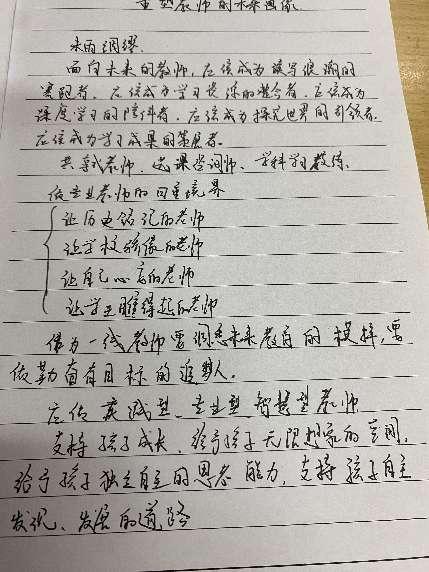 型教师的未来画像
未雨绸缪.
面向未来的教师,应该成为读写浪潮的
应该成为学习长链的整合者,应该成为
深度学习的陪伴者,应该成为探究世界的引领者,
应该成为学习成果的策展者.
共享式教师、选课咨询师、学科学习教练.
做专业教师的四重境界
让历史铭记的老师
让学校骄傲的老师
让自己心安的老师
让学生瞧得起的老师
作为一线教师要洞悉未来教育的模样,要
做勤奋有目标的追梦人.
应做 型 专业型 智慧型教师
支持孩子成长,给予孩子无限想象的空间,
给予孩子独立自主的思考能力,支持孩子自主
发现、发展的道路